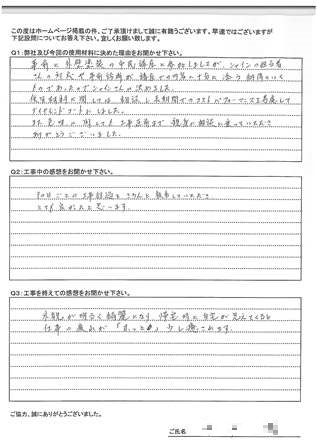 この度はホームページ掲載の件、ご了承頂けまして誠に有難うございます。早速ではございますが
下記設問についてお答え下さい。宜しくお願い致します。
Q1:弊社及び今回の使用材料に決めた理由をお聞かせ下さい。
事前に外壁塗装の市民講座に参加しましたが、シャインの担当者
さんの対応や事前診断が講座での内容に十分に添う納得のいく
ものであったのでシャインさんに決めました。
使用材料に関しては相談し長期間でのコストパフォーマンスを考慮して
ダイヤモンドコートにしました。
また色味に関しても工事直前まで親身に相談に乗っていただき
ありがとうございました。
Q2:工事中の感想をお聞かせ下さい。
和日ごとの工事経過をきちんと報告していただき
とても良かったと思います。
Q3:工事を終えての感想をお聞かせ下さい。
外観が明るく綺麗になり、帰宅時に自宅が見えてくると
仕事の疲れが「まっとめ」少し癒されます。
ご協力、誠にありがとうございました。
ご氏名